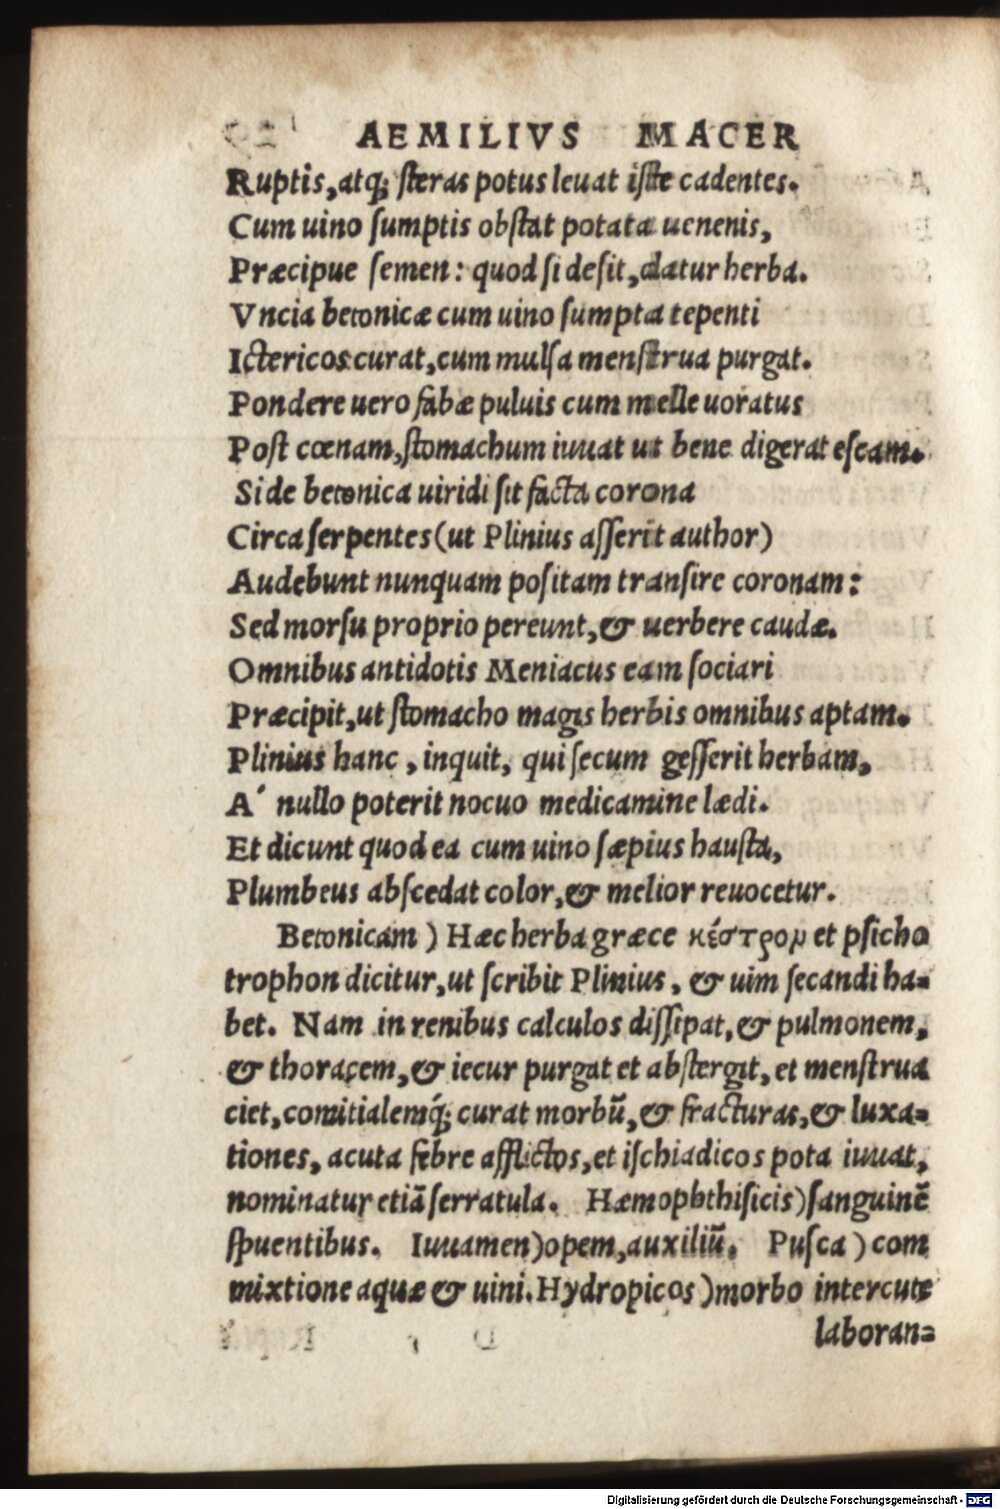 AEMILIVS MACER
Ruptis, atq; steras potus leuat iste cadentes.
Cum uino sumptis obstat potata uenenis,
Præcipue semen: quod si desit, datur herba.
Vncia betonicæ cum uino sumpta tepenti
Ictericos curat, cum mulsa menstrua purgat.
Pondere uero fabæ puluis cum melle uoratus
Post cœnam, stomachum iuuat ut bene digerat escam.
Si de betonica uiridi sit facta corona
Circa serpentes (ut Plinius asserit author)
Audebunt nunquam positam transire coronam:
Sed morsu proprio pereunt, & uerbere caudæ.
Omnibus antidotis Meniacus eam sociari
Præcipit, ut stomacho magis herbis omnibus aptam.
Plinius hanc, inquit, qui secum gesserit herbam,
A' nullo poterit nocuo medicamine lædi.
Et dicunt quod ea cum uino sæpius hausta,
Plumbeus abscedat color, & melior reuocetur.
Betonicam ) Hæc herba græce κέστρον et psicho
trophon dicitur, ut scribit Plinius, & uim secandi ha=
bet. Nam in renibus calculos dissipat, & pulmonem,
& thoracem, & iecur purgat et abstergit, et menstrua
ciet, comitialemq́; curat morbū, & fracturas, & luxa=
tiones, acuta febre afflictos, et ischiadicos pota iuuat,
nominatur etiā serratula. Hæmophthisicis) sanguinē
spuentibus. Iuuamen) opem, auxiliū. Pusca ) com
mixtione aquæ & uini. Hydropicos ) morbo intercute
laboran=
Digitalisierung gefördert durch die Deutsche Forschungsgemeinschaft - DFG